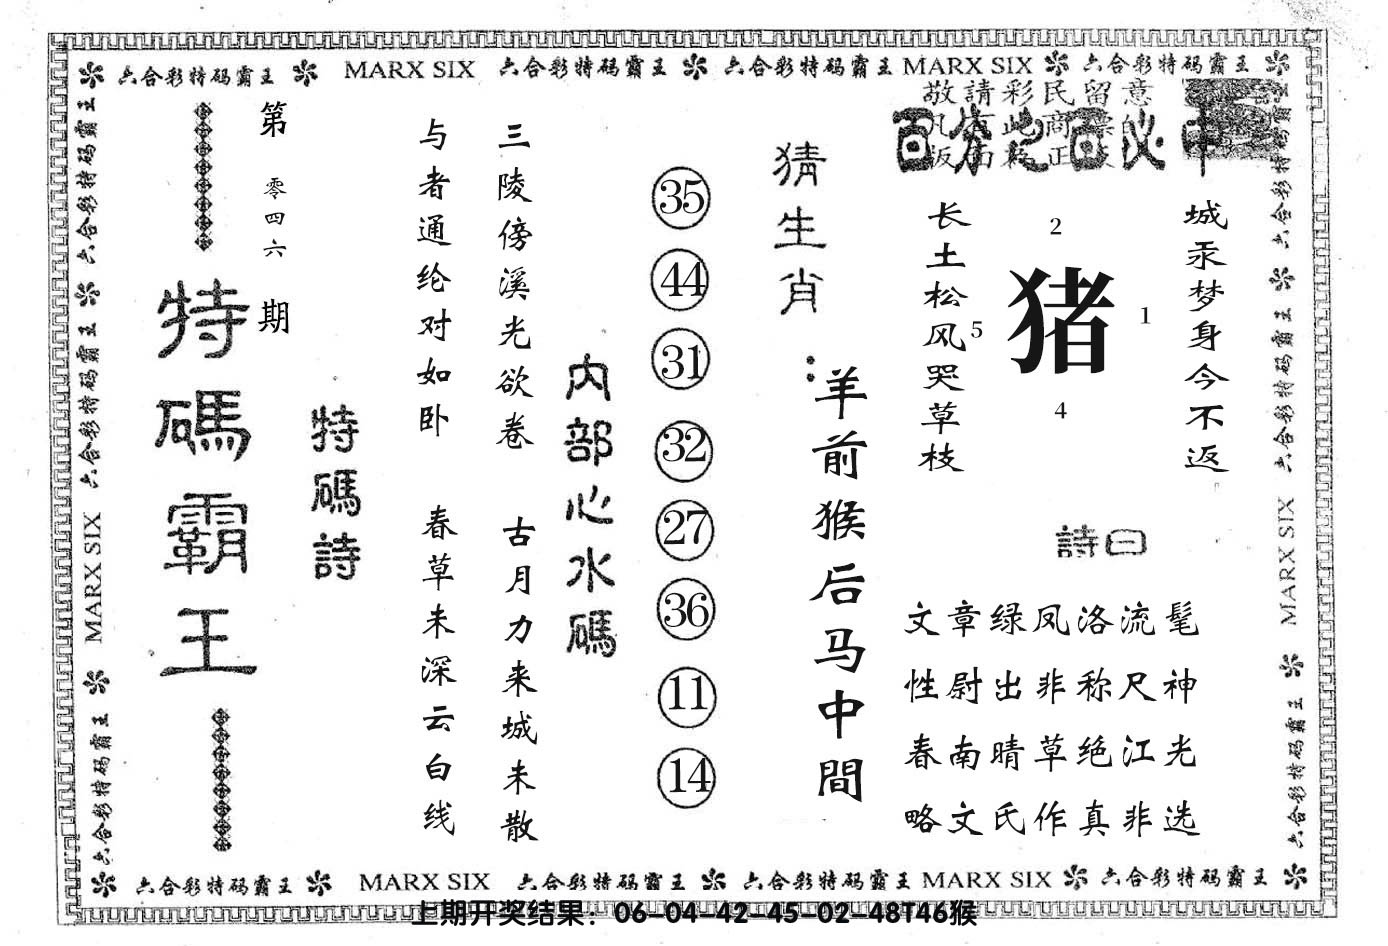 六合彩特码霸王 MARX SIX 六合彩特码霸王 六合彩特码霸王 MARX SIX 六合彩特码霸王
敬請彩民留意
百分之百必中
第零四六期
特碼霸王
特碼詩
与者通纶对如卧 春草未深云白线
三陵傍溪光欲卷 古月力来城未散
内部心水碼
35
44
31
32
27
36
11
14
猜生肖：
羊前猴后马中間
长土松风哭草枝
2
5 猪 1
4
城汞梦身今不返
詩曰
文章绿凤洛流髦
性尉出非称尺神
春南晴草绝江光
略文氏作真非选
六合彩特码霸王 MARX SIX 六合彩特码霸王
六合彩特码霸王 MARX SIX 六合彩特码霸王
六合彩特码霸王 MARX SIX 六合彩特码霸王 六合彩特码霸王 MARX SIX 六合彩特码霸王
上期开奖结果：06-04-42-45-02-48T46猴